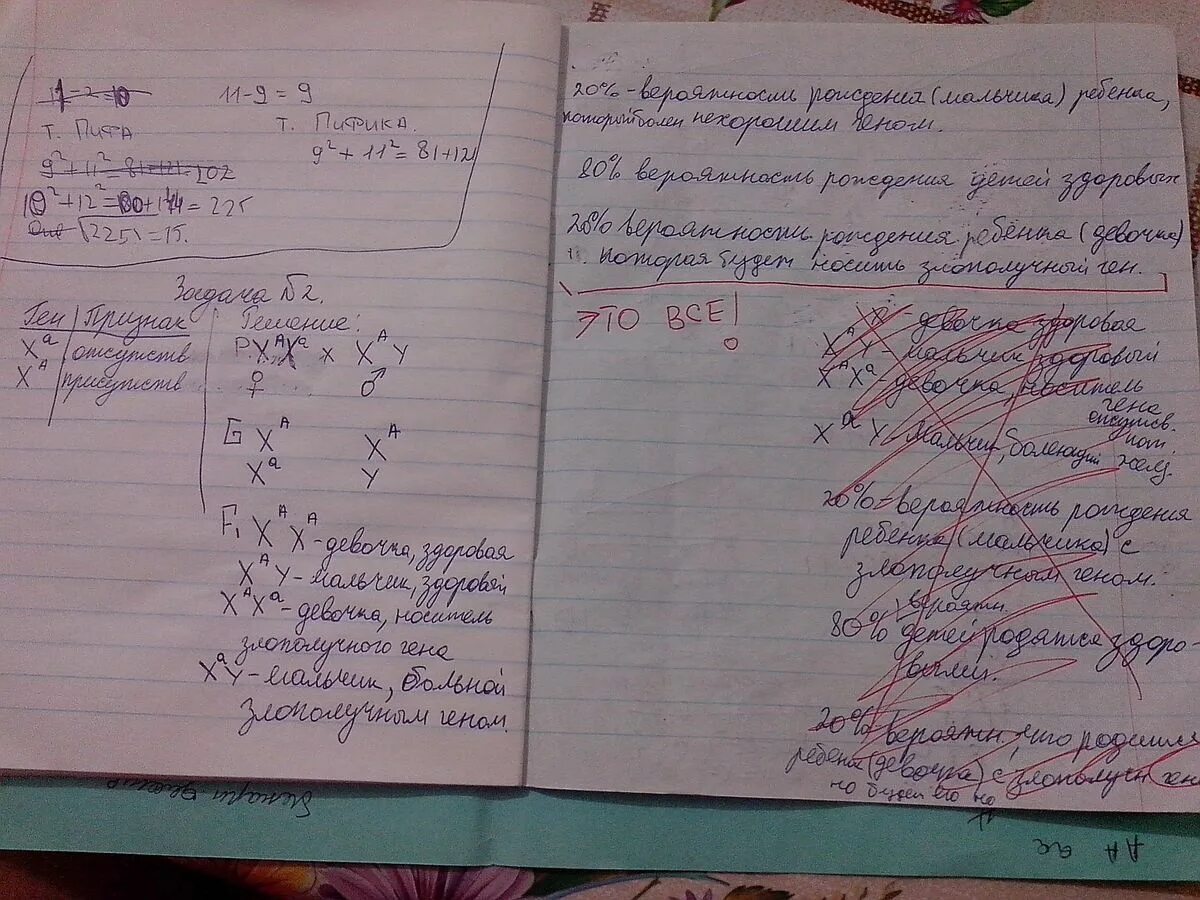 11-2=10
11-9=9
Т. ПИФА
Т. ПИФИКА.
9²+11²=81+121=202
9²+11²=81+121
10²+12²=100+144=225
√225=15.
Задача №2.
Ген Признак
Xᵃ отсутств
Xᴬ присутств
Решение:
P XᴬXᵃ x XᴬY
♀ ♂
G Xᴬ Xᴬ
Xᵃ Y
F₁ XᴬXᴬ-девочка, здоровая
XᴬY-мальчик, здоровый
XᴬXᵃ-девочка, носитель
злополучного гена
XᵃY-мальчик, больной
злополучным геном.
20%-вероятность рождения (мальчика) ребенка,
который болен нехорошим геном.
80% вероятность рождения детей здоровых
20% вероятность рождения ребенка (девочка)
которая будет носить злополучный ген.
ЭТО ВСЕ!
девочка здоровая
XᴬY-мальчик здоровый
XᴬXᵃ-девочка, носитель
гена
отсутств.
пот.
XᵃY-мальчик, болеющий желез.
20%-вероятность рождения
ребенка (мальчика) с
злополучным геном.
вероятн.
80% детей родятся здоро-
выми.
20% вероятн, что родится
ребенк (девочка) с злополучн ген
но будет его но
АА аа